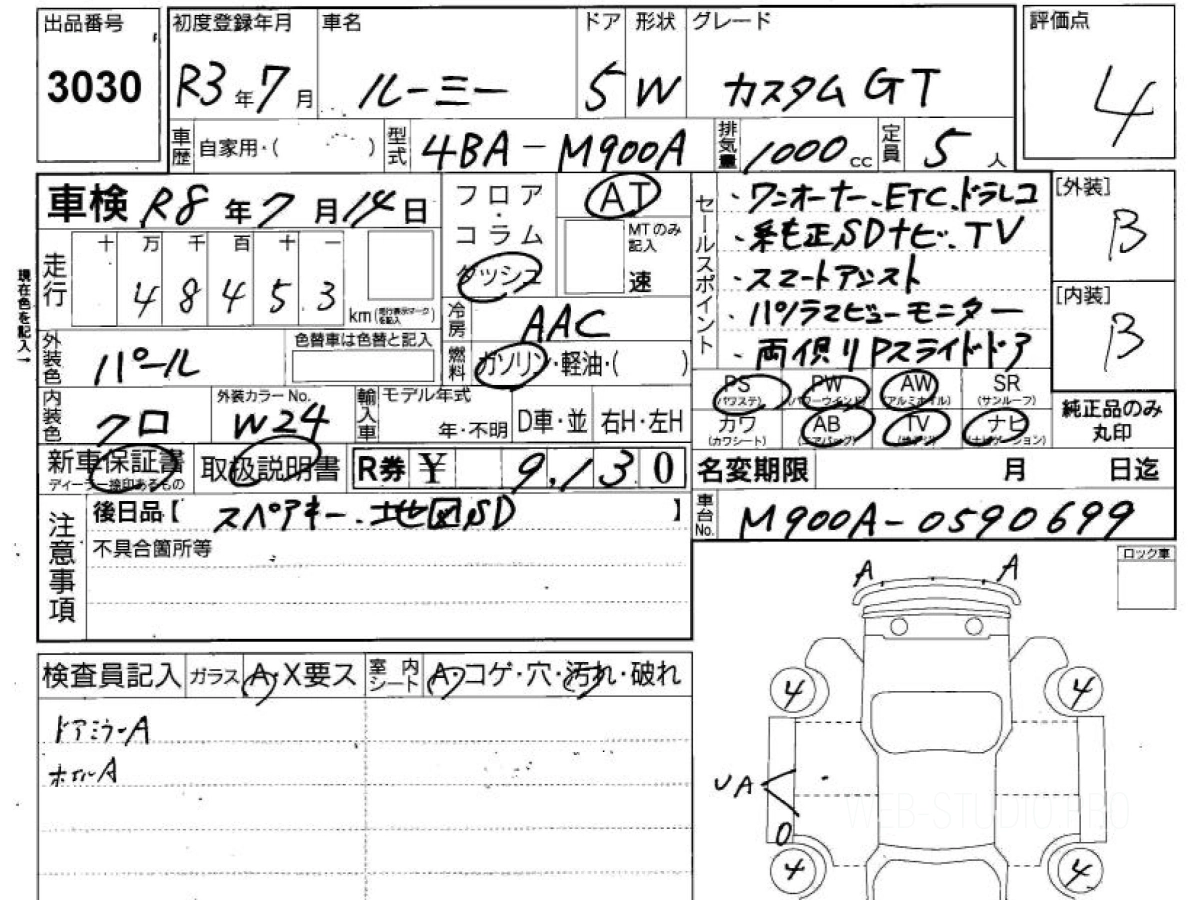 出品番号 初度登録年月 車名 ドア 形状 グレード 評価点
3030 R3年7月 ルーミー 5 W カスタムGT 4
車歴 自家用・( ) 型式 4BA-M900A 排気量 1000cc 定員 5人
車検 R8年7月14日 フロア・コラム ダッシュ AT MTのみ記入 速
セールスポイント
・ワンオーナー、ETC、ドラレコ
・純正SDナビ、TV
・スマートアシスト
・パノラマビューモニター
・両側リPスライドドア
[外装] B
[内装] B
現在色を記入→
走行 十 万 千 百 十 一
4 8 4 5.3 km(走行表示マークを記入)
冷房 AAC
外装色 パール 色替車は色替と記入 燃料 ガソリン・軽油・( )
内装色 クロ 外装カラーNo. W24 輸入車 モデル年式 年・不明 D車・並 右H・左H
PS(パワステ) PW(パワーウインド) AW(アルミホイル) SR(サンルーフ)
カワ(カワシート) AB(エアバッグ) TV ナビ(ナビゲーション)
純正品のみ丸印
新車保証書 ディーラー捺印あるもの 取扱説明書 R券 ¥ 9,130 名変期限 月 日迄
注意事項 後日品【スペアキー、地図SD】 車台No. M900A-0590699
不具合箇所等
ロック車
検査員記入 ガラス A・X要ス 室内シート A・コゲ・穴・汚れ・破れ
ドアミラーA
ホイルA
A A
4 4
UA
0
4 4
WEB-STUDIO.PRO